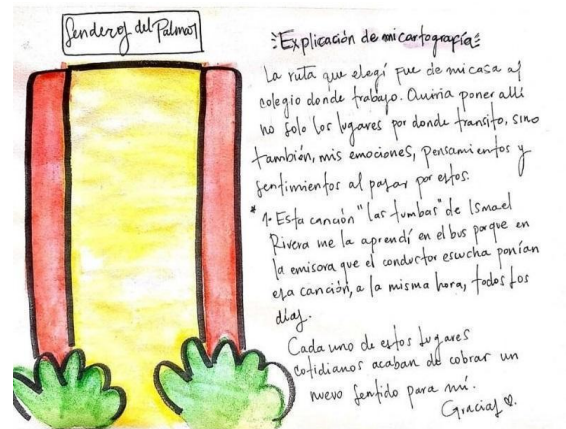 Senderos del Palmar
Explicación de mi cartografía:
La ruta que elegí fue de mi casa al
colegio donde trabajo. Quiria poner allí
no solo los lugares por donde transito, sino
también, mis emociones, pensamientos y
sentimientos al pasar por estos.
* 1- Esta canción "las tumbas" de Ismael
Rivera me la aprendí en el bus porque en
la emisora que el conductor escucha ponían
esa canción, a la misma hora, todos los
días.
Cada uno de estos lugares
cotidianos acaban de cobrar un
nuevo sentido para mí.
Gracias ♡.